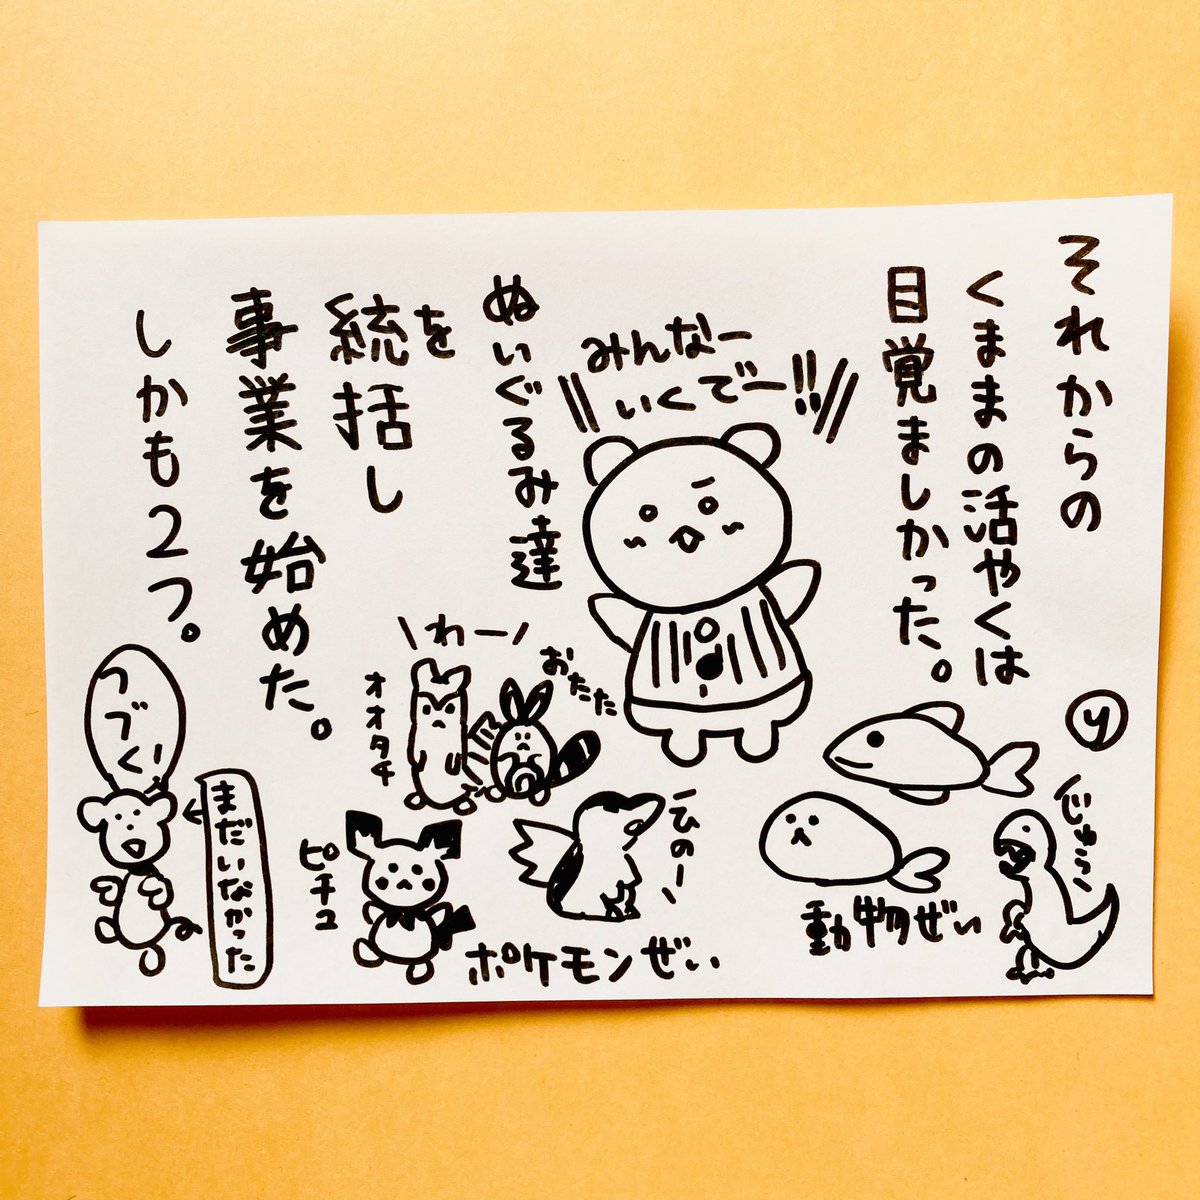 それからの
くままの活やくは
目覚ましかった。
みんなー
いくでー!!
ぬいぐるみ達
を
統括し
事業を始めた。
しかも2つ。
わー
おたた
オオタチ
ピチュ
ひのー
ポケモンぜい
動物ぜい
じゅらー
つづく!
まだいなかった